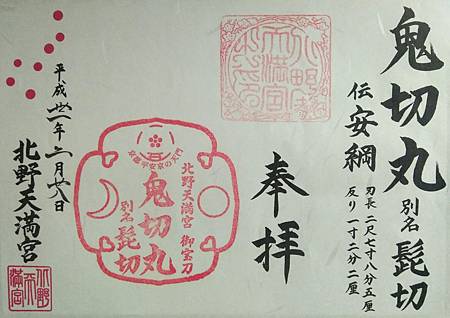 鬼切丸 別名 髭切
伝 安綱
刃長 二尺七寸八分五厘
反り 一寸二分二厘
奉拝
京都平安京の天門
北野天満宮 御宝刀
鬼切丸
別名 髭切
平成卅一年二月廿八日
北野天満宮
北野天満宮